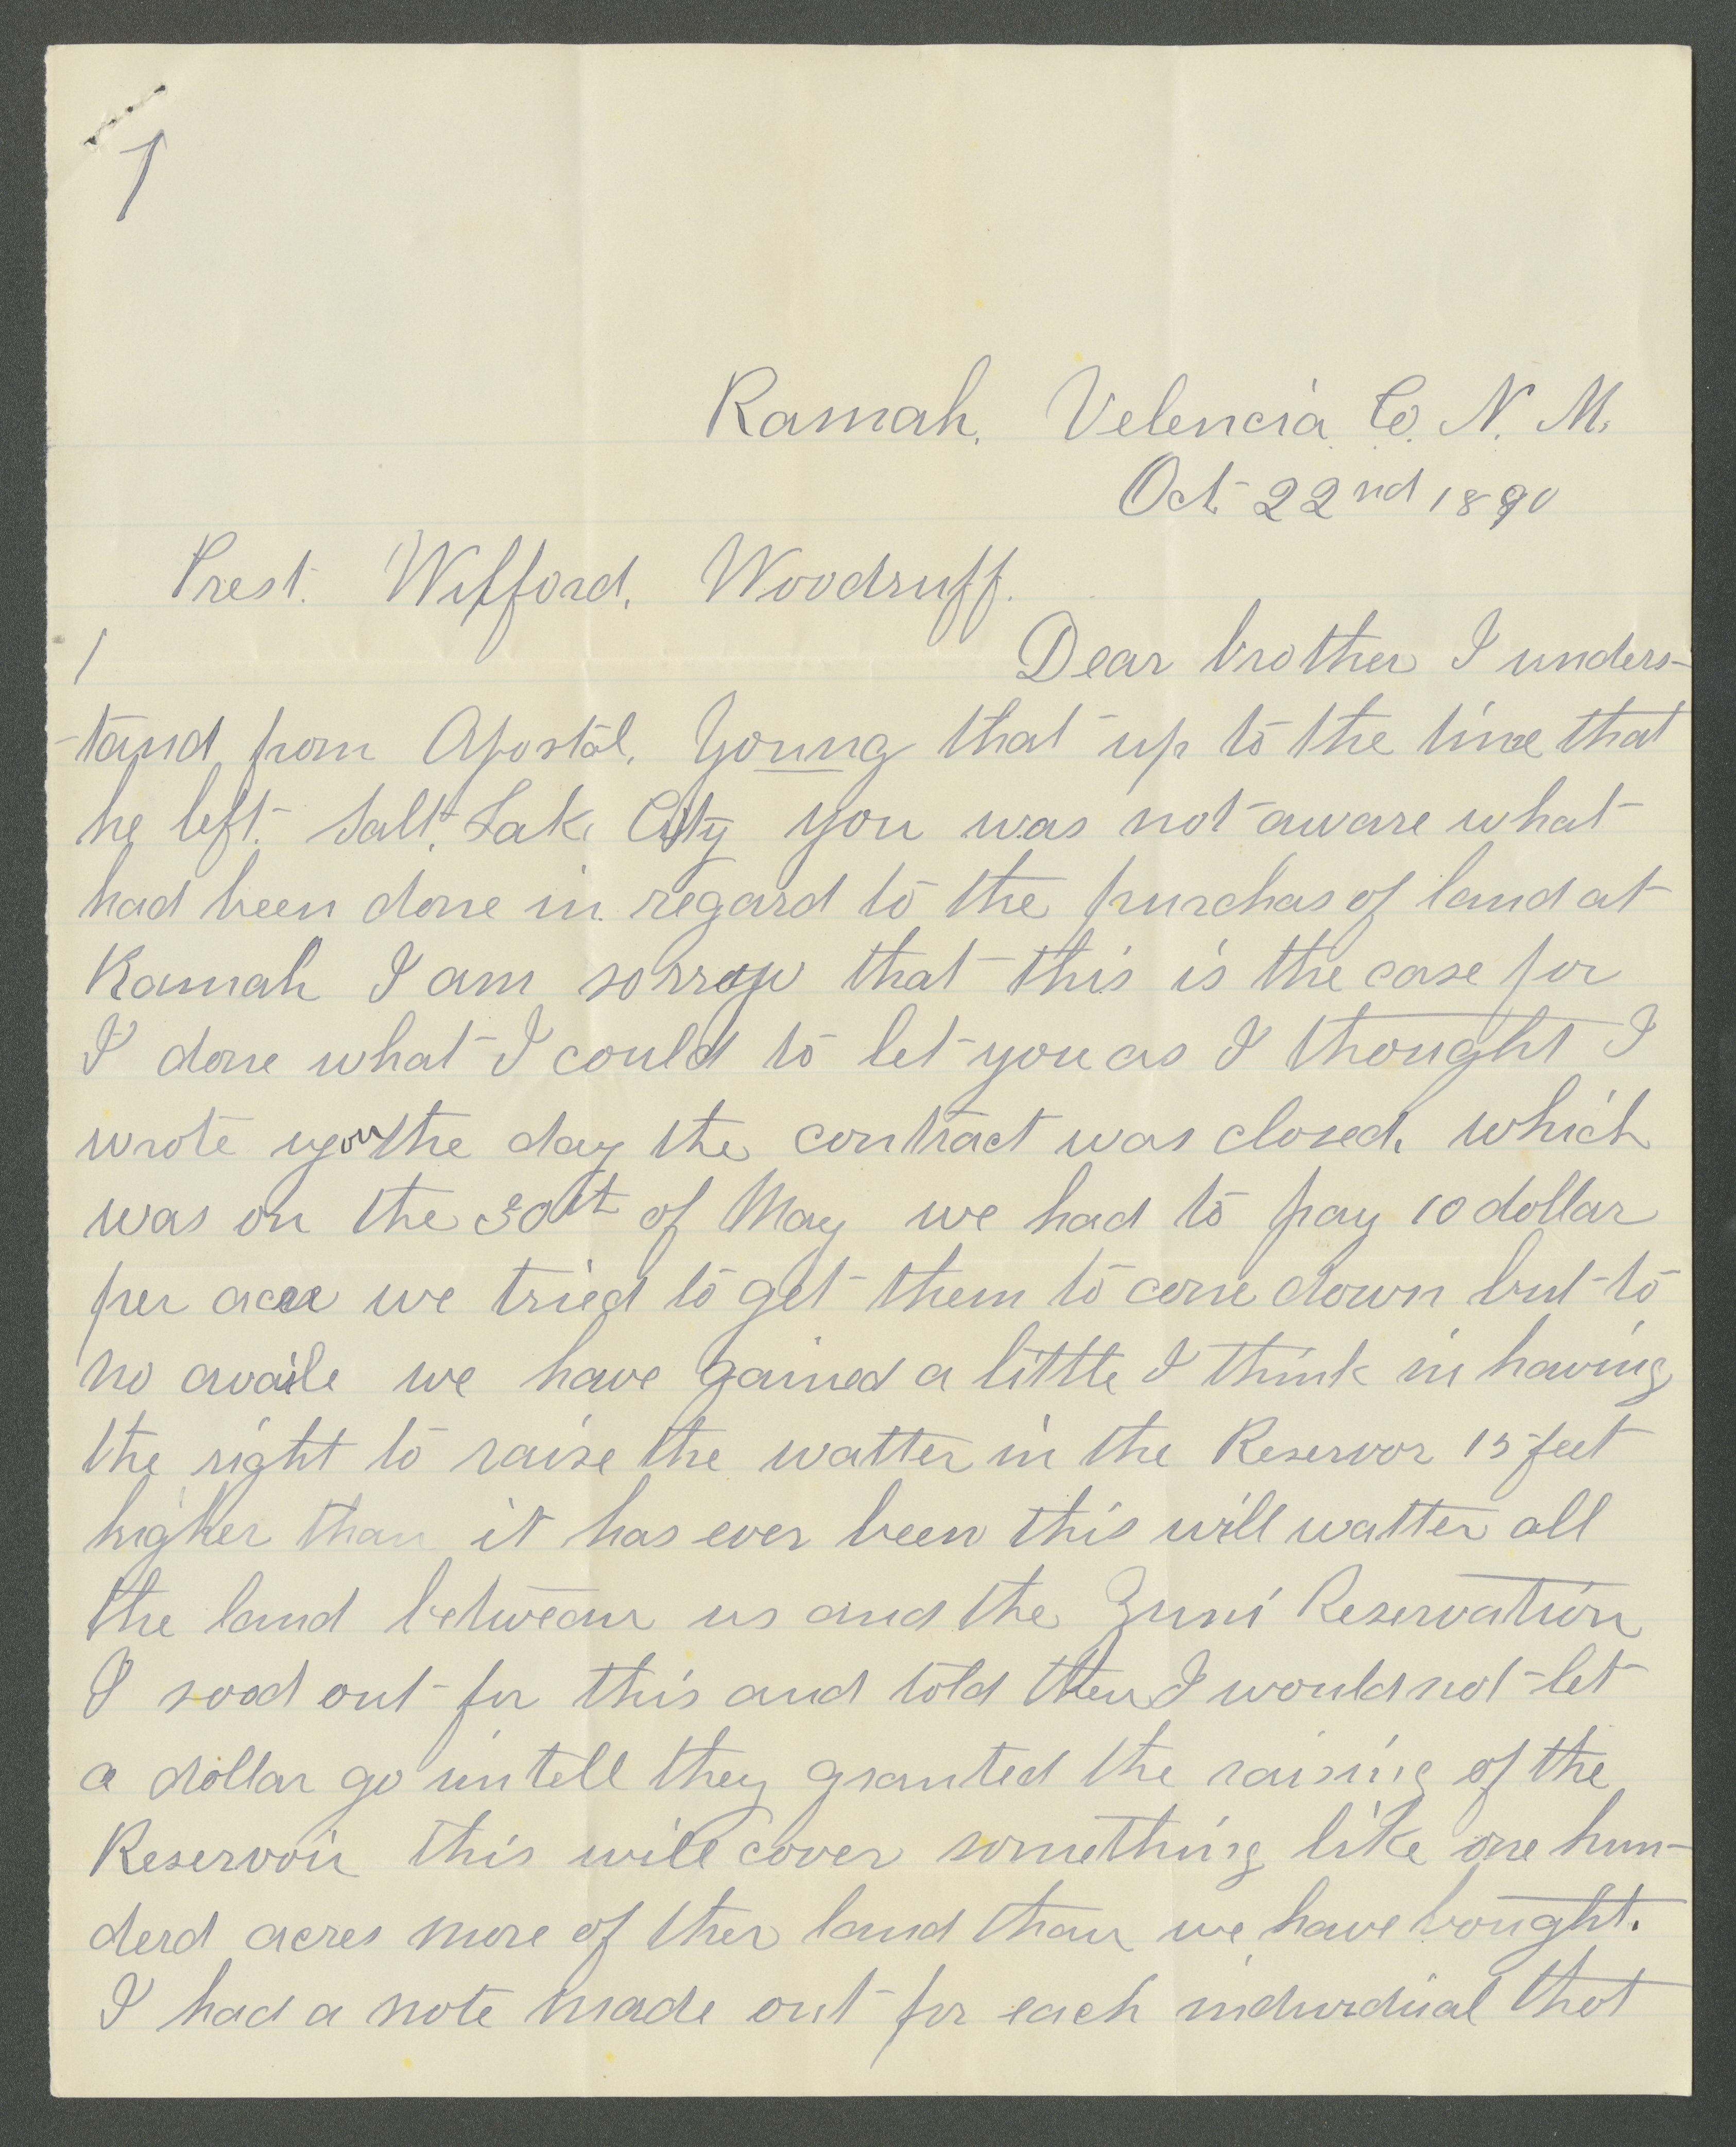 1
Ramah, Velencia Co. N. M.
Oct 22nd 1890
Prest. Wifford, Woodruff.
1
Dear brother I unders-
-tand from Apostol. Young that up to the time that
he left. Salt, Lake City you was not aware what
had been done in regard to the purchas of land at
Ramah I am sorrow that this is the case for
I done what I could to let you as I thought I
wrote you the day the contract was closed. which
was on the 30th of May we had to pay 10 dollar
per acre we tried to get them to come down but to
no availe we have gained a little I think in having
the right to raise the watter in the Reservor 15 feet
higher than it has ever been this will watter all
the land betwean us and the Zuni Reservation
I sood out for this and told them I would not let
a dollar go untell they granted the raising of the
Reservoir this will cover something like one hun-
derd acres more of ther land than we have bought.
I had a note made out for each individual that